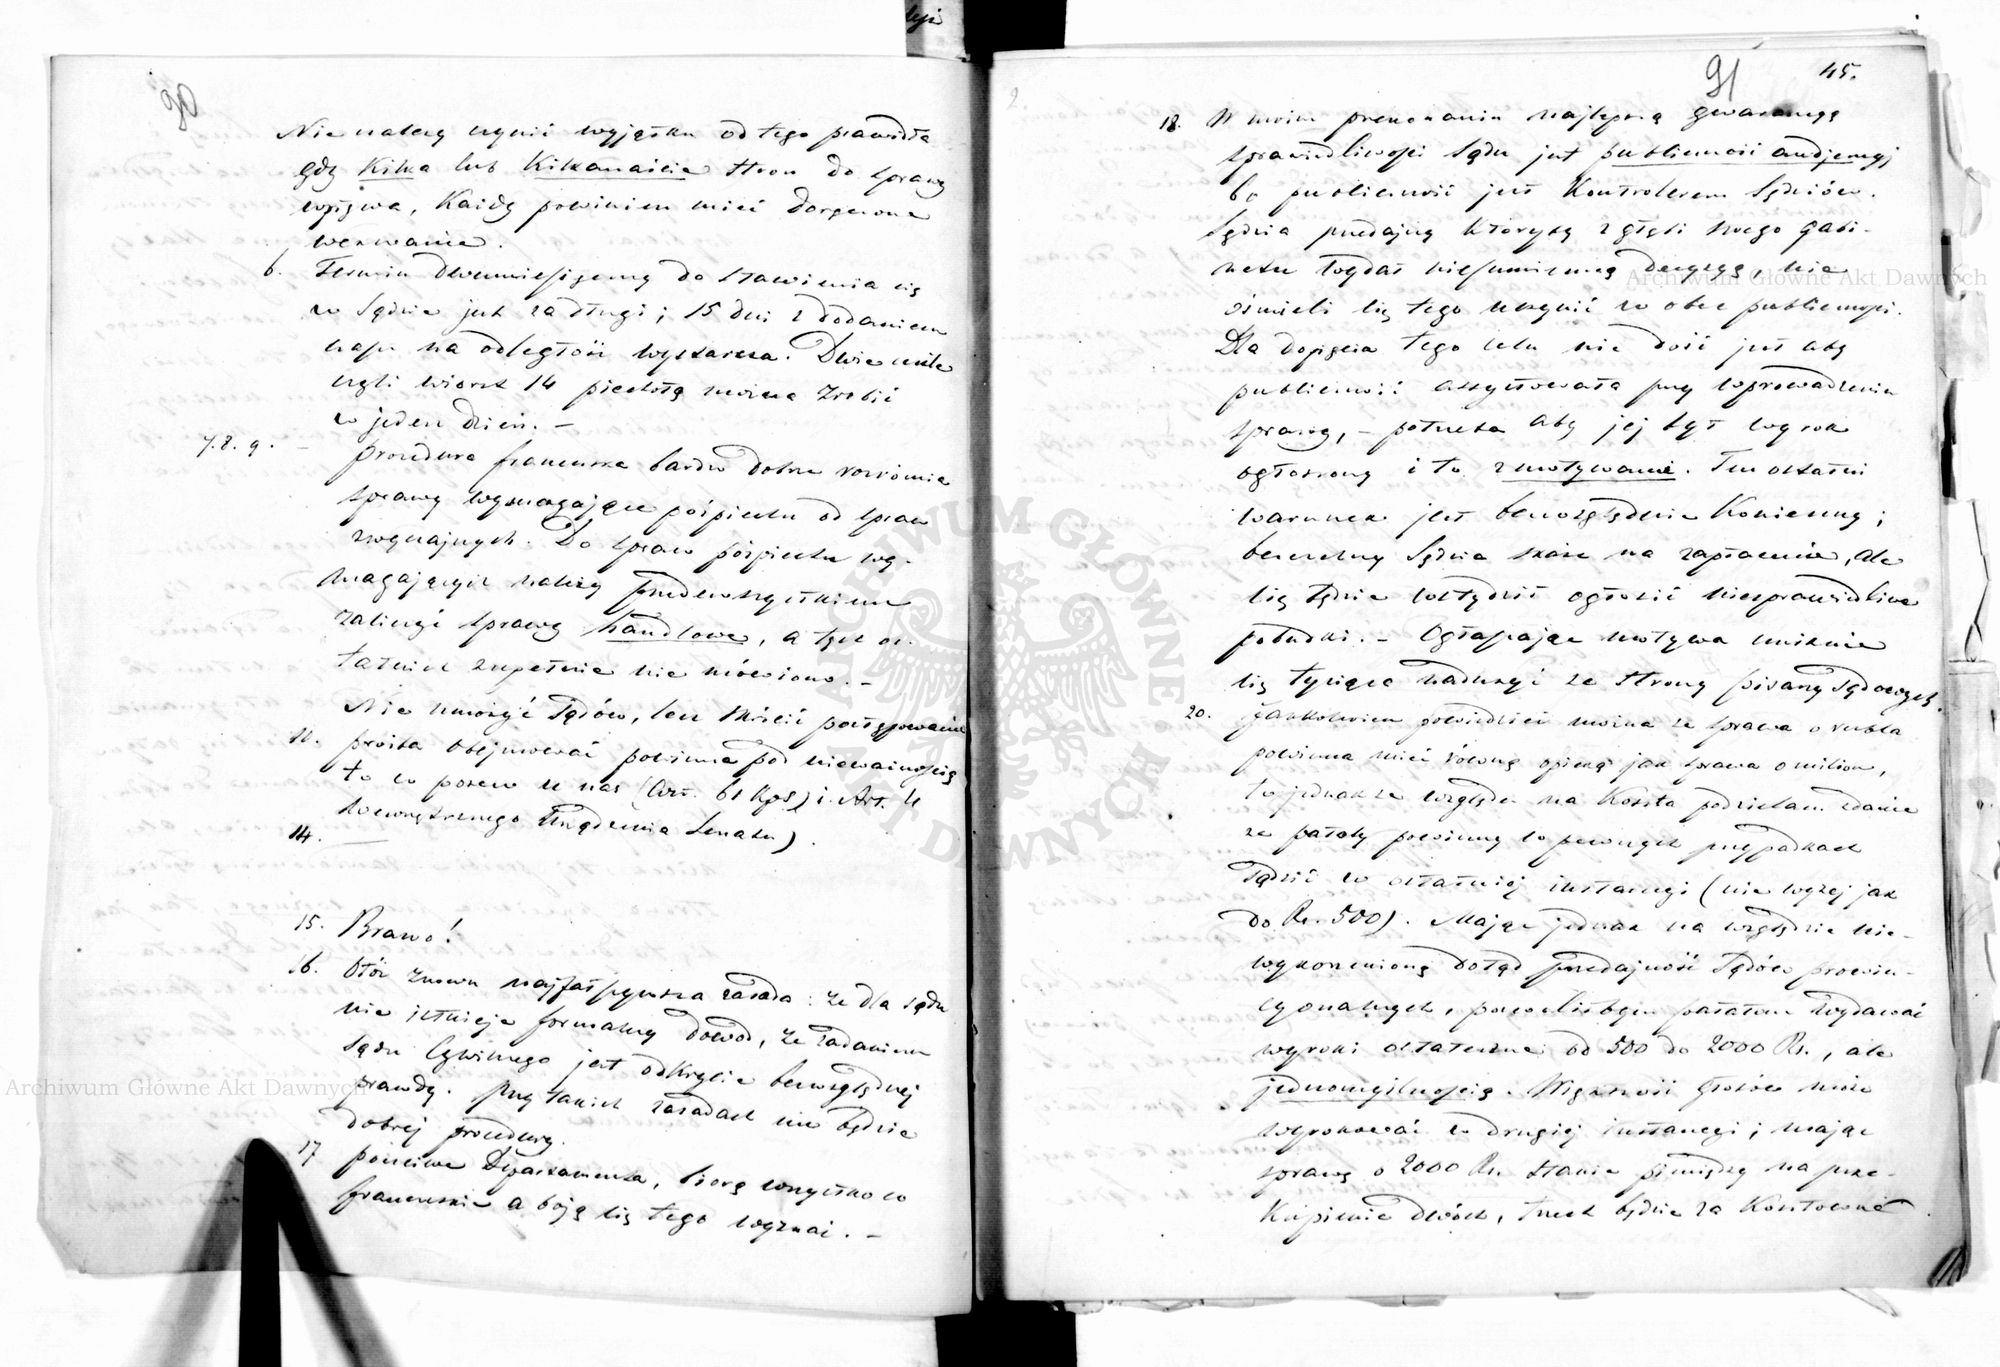 90
Nie należy czynić wyjątku od tego prawidła
gdy Kilka lub Kilkanaście stron do sprawy
wpływa, Każdy powinien mieć doręczone
wezwanie.
6. Termin dwumiesięczny do stawienia się
w Sądzie jest za długi; 15 dni z dodaniem
czasu na odległość wystarcza. Dwie mile
czyli wiorst 14 piechotą można zrobić
w jeden dzień. –
7. 8. 9. – procedura francuzka bardzo dobrze rozróżnia
sprawy wymagające pośpiechu od spraw
zwyczajnych. Do spraw pośpiechu wy-
magających należy przedewszystkiem
zaliczyć sprawy handlowe, a tych os-
tatnich zupełnie nie mówiono. –
Nie mnożyć Sądów, lecz skrócić postępowanie
11. prośba obejmować powinna pod nieważnością
to co pozew u nas (Art. 61 Kps) i Art. 4
wewnętrznego Urządzenia Senatu).
14. —
15. Brawo!
16. Otóż znowu najfałszywsza zasada: że dla sądu
nie istnieje formalny dowód, że zadaniem
sądu Cywilnego jest odkrycie bezwzględnej
prawdy. przy takich zasadach nie będzie
dobrej procedury.
17 poczciwe Departamenta, biorą wszystko co
francuzkie a boją się tego wyznać. –
91 45.
18. W moim przekonaniu najlepszą gwarancyą
sprawiedliwości Sądu jest publiczność audjencyj
bo publiczność jest Kontrolerem Sędziów.
Sędzia przedajny któryby z głębi swego gabi-
netu wydał niesumienną decyzyą, nie
ośmieli się tego uczynić w obec publiczności.
Dla dopięcia tego celu nie dość jest aby
publiczność assystowała przy wprowadzeniu
sprawy, – potrzeba aby jej był wyrok
ogłoszony i to z motywami. Ten ostatni
warunek jest bezwzględnie Konieczny;
bezczelny Sędzia skaże na zapłacenie, ale
się będzie wstydził ogłosić niesprawiedliwe
pobudki. – Ogłaszając motywa uniknie
się tysiące nadużyć ze strony pisarzy sądowych.
20. Jakkolwiek powiedzieć można że sprawa o rubla
powinna mieć równą opiekę jak sprawa o milion,
to jednak ze względu na Koszta podzielam zdanie
że pałaty powinny w pewnych przypadkach
sądzić w ostatniej instancyi (nie wyżej jak
do Rs. 500). Mając jednak na względzie nie-
wykorzenioną dotąd przedajność Sądów prowin-
cyonalnych, pozwoliłbym pałatom wydawać
wyroki ostateczne od 500 do 2000 Rs., ale
jednomyślnością. Większość głosów może
wyrokować w drugiej instancyi; mając
sprawę o 2000 Rs. stanie pieniędzy na prze-
Kupienie dwóch, trzech będzie za Kosztowne.
Archiwum Główne Akt Dawnych
Archiwum Główne Akt Dawnych
ARCHIWUM GŁÓWNE AKT DAWNYCH